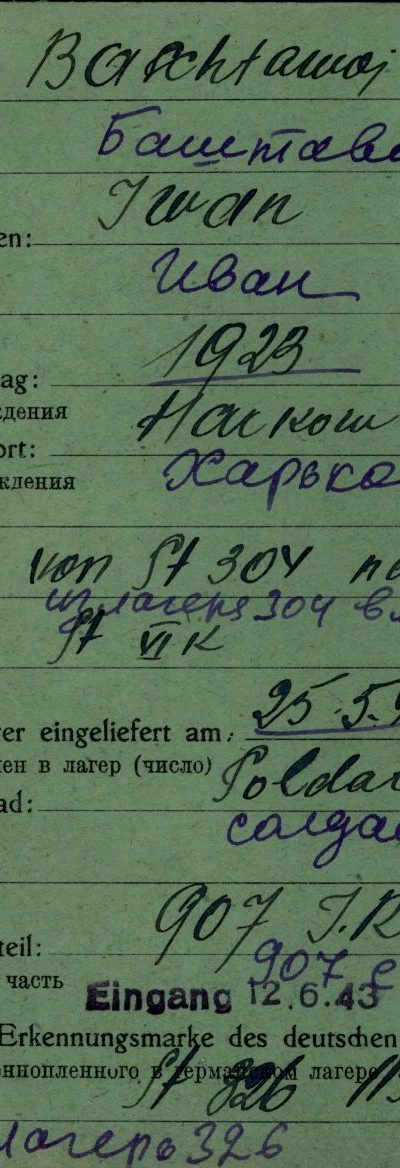 Baschtawoj
Баштаво
Iwan
en:
Иван
ag: 1923
ждения
Harkow
ort:
Харько
ждения
von St 304 n
из лагеря 304 в
St VI K
er eingeliefert am: 25.5.4
ен в лагер (число)
Soldat
ad:
солда
907 I.R
teil:
907 с
часть
Eingang 12.6.43
Erkennungsmarke des deutschen
еннопленного в германском лагере
St 326 11
лагерь 326